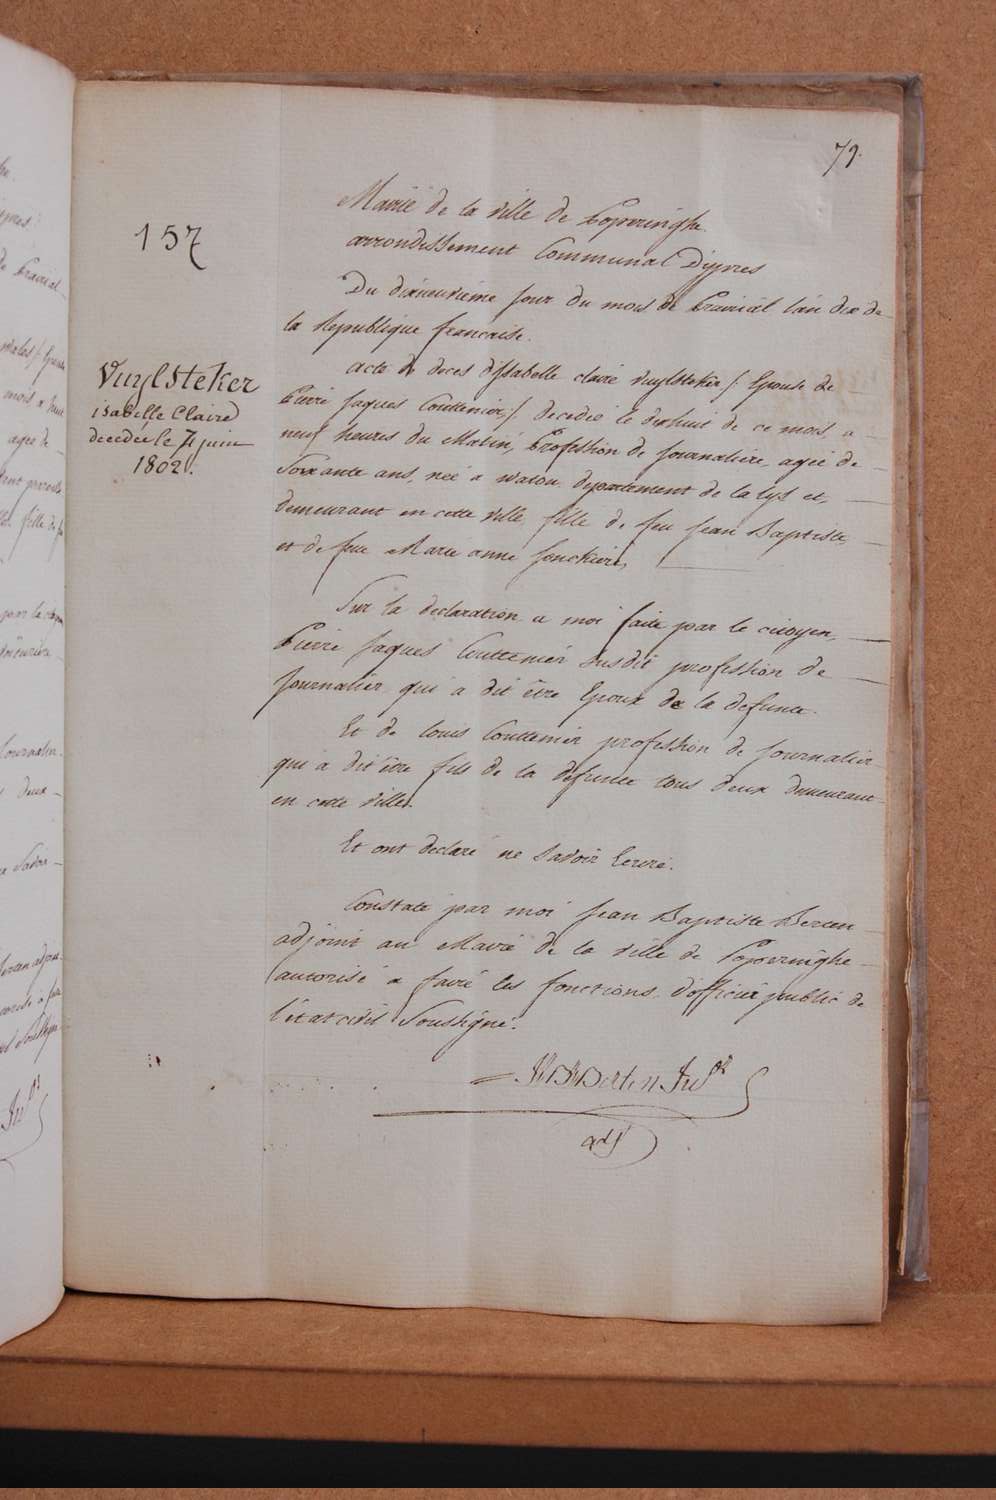 79.
157
Mairie de la ville de Poperinghe.
arrondissement Communal Dijpres
Du dixneuvieme jour du mois de Prairial l'an dix de
la Republique francaise.
Vuylsteker
isabelle Claire
decedée le 7 juin
1802.
acte de deces d'Isabelle claire vuylsteker /: Epouse de
Pierre Jaques Couttenier :/ decedée le dixhuit de ce mois, a
neuf heures du Matin, Profession de journaliere, agée de
Soixante ans, née a watou departement de la lys et,
demeurant en cette ville, fille de feu Jean Baptiste,
et de feue Marie anne
Sur la declaration a moi faite par le citoyen,
Pierre Jaques Couttenier susdit profession de
journalier qui a dit être Epoux de la defunte.
Et de Louis Couttenier profession de journalier
qui a dit être fils de la defunte tous deux demeurant
en cette ville.
Et ont declaré ne Savoir Ecrire.
Constaté par moi Jean Baptiste Berten
adjoint au Maire de la ville de Poperinghe
autorisé a faire les fonctions d'officier public de
l'état civil Soussigné.
adj